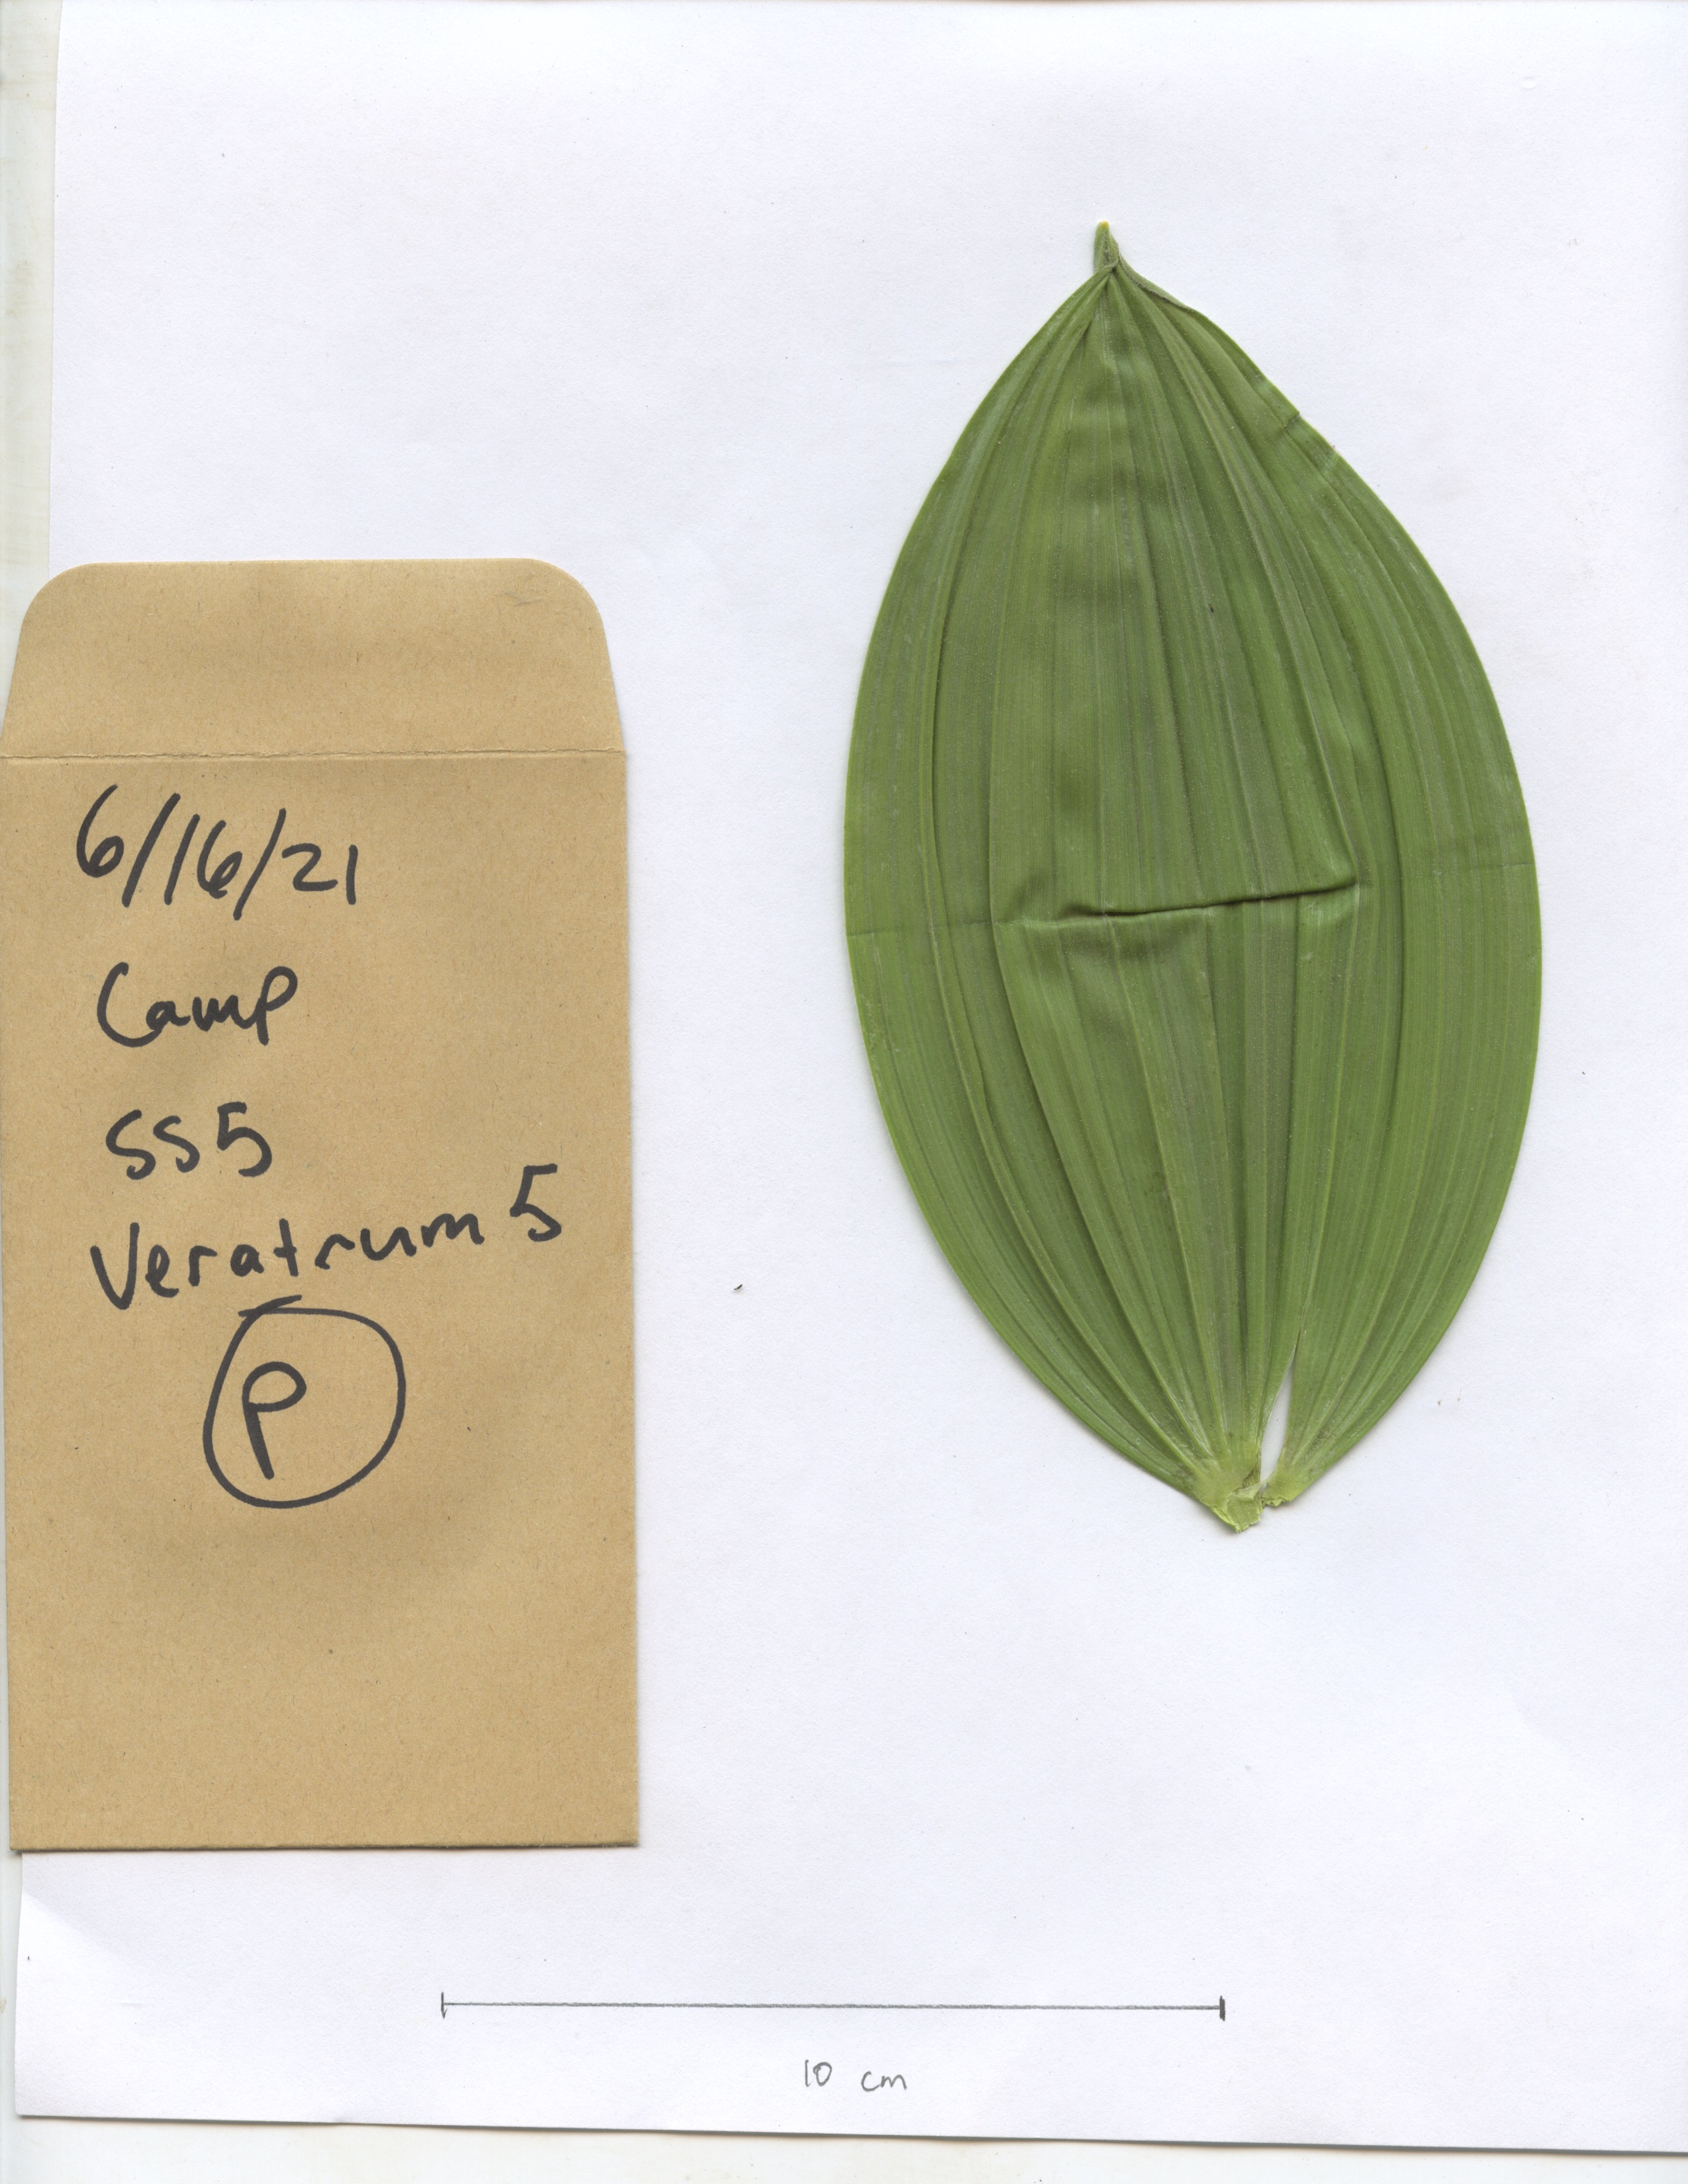 6/16/21
Camp
SS5
Veratrum 5
P
10 cm